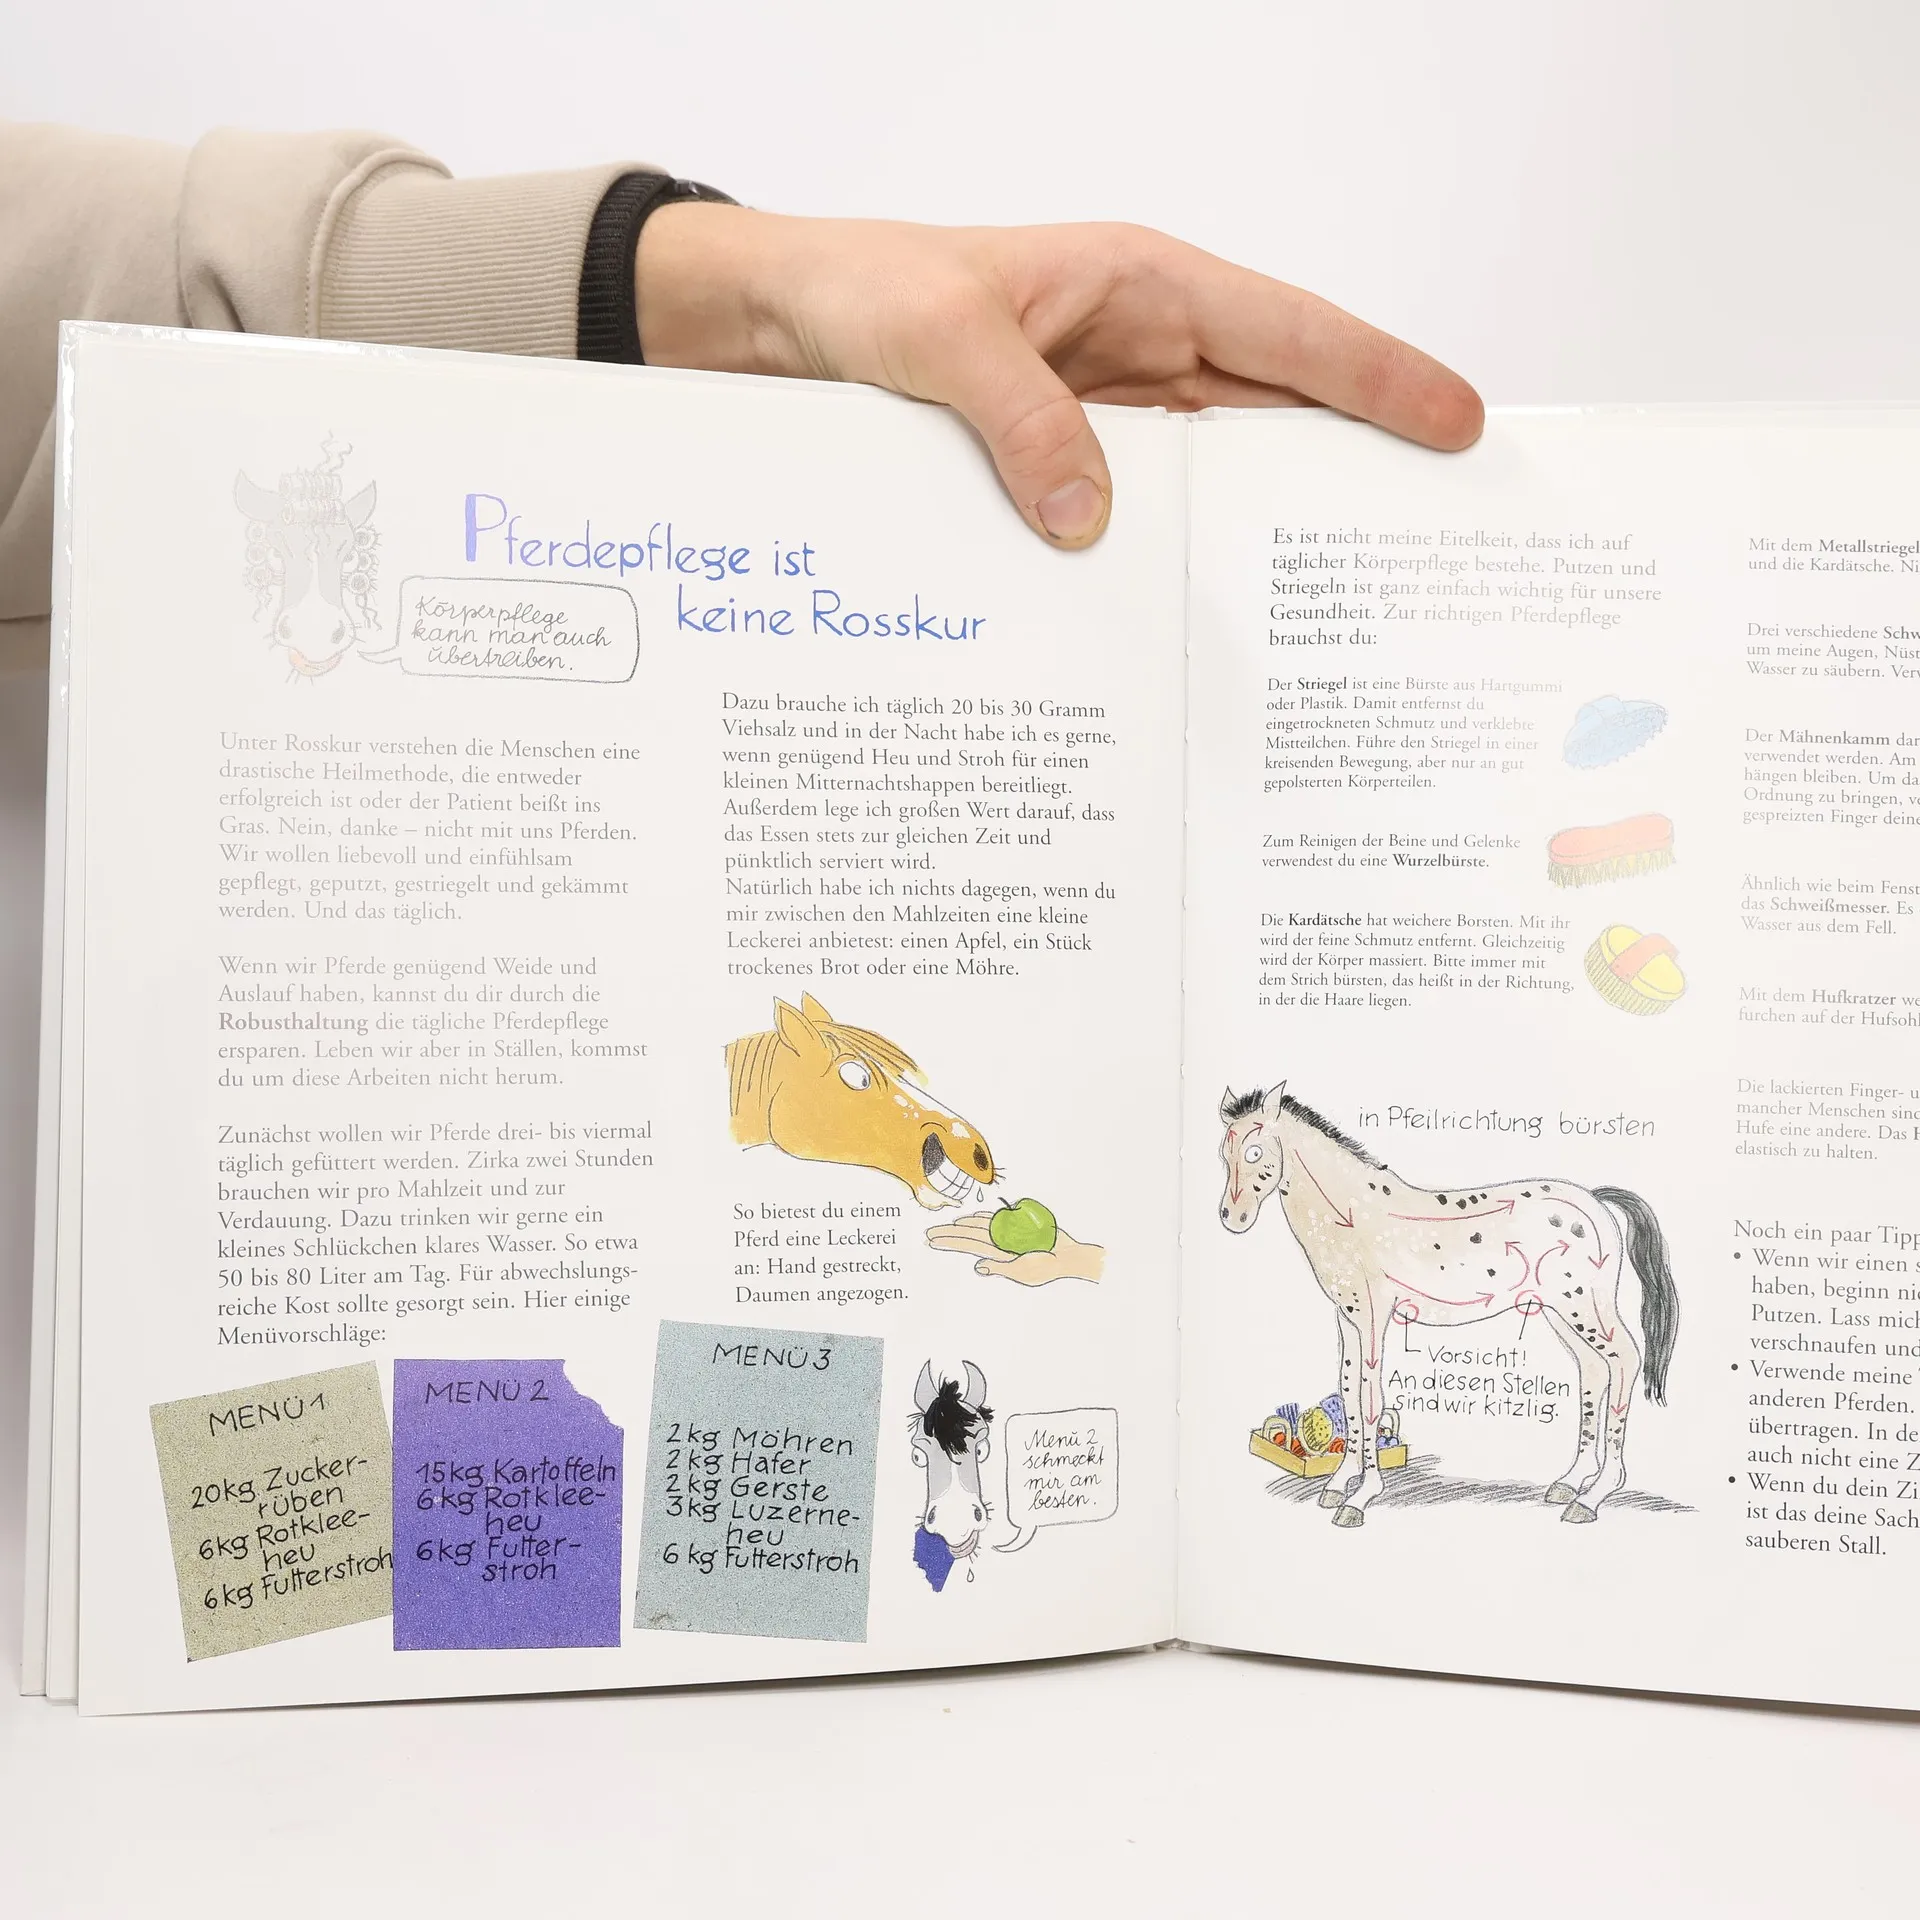 Pferdepflege ist
keine Rosskur
Körperpflege
kann man auch
übertreiben.
Unter Rosskur verstehen die Menschen eine
drastische Heilmethode, die entweder
erfolgreich ist oder der Patient beißt ins
Gras. Nein, danke – nicht mit uns Pferden.
Wir wollen liebevoll und einfühlsam
gepflegt, geputzt, gestriegelt und gekämmt
werden. Und das täglich.
Wenn wir Pferde genügend Weide und
Auslauf haben, kannst du dir durch die
Robusthaltung die tägliche Pferdepflege
ersparen. Leben wir aber in Ställen, kommst
du um diese Arbeiten nicht herum.
Zunächst wollen wir Pferde drei- bis viermal
täglich gefüttert werden. Zirka zwei Stunden
brauchen wir pro Mahlzeit und zur
Verdauung. Dazu trinken wir gerne ein
kleines Schlückchen klares Wasser. So etwa
50 bis 80 Liter am Tag. Für abwechslungs-
reiche Kost sollte gesorgt sein. Hier einige
Menüvorschläge:
MENÜ 1
20kg Zucker-
rüben
6kg Rotklee-
heu
6kg Futterstroh
MENÜ 2
15kg Kartoffeln
6kg Rotklee-
heu
6kg Futter-
stroh
MENÜ 3
2kg Möhren
2kg Hafer
2kg Gerste
3kg Luzerne-
heu
6 kg Futterstroh
Dazu brauche ich täglich 20 bis 30 Gramm
Viehsalz und in der Nacht habe ich es gerne,
wenn genügend Heu und Stroh für einen
kleinen Mitternachtshappen bereitliegt.
Außerdem lege ich großen Wert darauf, dass
das Essen stets zur gleichen Zeit und
pünktlich serviert wird.
Natürlich habe ich nichts dagegen, wenn du
mir zwischen den Mahlzeiten eine kleine
Leckerei anbietest: einen Apfel, ein Stück
trockenes Brot oder eine Möhre.
So bietest du einem
Pferd eine Leckerei
an: Hand gestreckt,
Daumen angezogen.
Menü 2
schmeckt
mir am
besten.
Es ist nicht meine Eitelkeit, dass ich auf
täglicher Körperpflege bestehe. Putzen und
Striegeln ist ganz einfach wichtig für unsere
Gesundheit. Zur richtigen Pferdepflege
brauchst du:
Der Striegel ist eine Bürste aus Hartgummi
oder Plastik. Damit entfernst du
eingetrockneten Schmutz und verklebte
Mistteilchen. Führe den Striegel in einer
kreisenden Bewegung, aber nur an gut
gepolsterten Körperteilen.
Zum Reinigen der Beine und Gelenke
verwendest du eine Wurzelbürste.
Die Kardätsche hat weichere Borsten. Mit ihr
wird der feine Schmutz entfernt. Gleichzeitig
wird der Körper massiert. Bitte immer mit
dem Strich bürsten, das heißt in der Richtung,
in der die Haare liegen.
in Pfeilrichtung bürsten
Vorsicht!
An diesen Stellen
sind wir kitzlig.
Mit dem Metallstriegel
und die Kardätsche. Ni
Drei verschiedene Schw
um meine Augen, Nüst
Wasser zu säubern. Verw
Der Mähnenkamm dar
verwendet werden. Am
hängen bleiben. Um da
Ordnung zu bringen, ve
gespreizten Finger deine
Ähnlich wie beim Fenst
das Schweißmesser. Es
Wasser aus dem Fell.
Mit dem Hufkratzer we
furchen auf der Hufsohl
Die lackierten Finger- u
mancher Menschen sind
Hufe eine andere. Das H
elastisch zu halten.
Noch ein paar Tipp
• Wenn wir einen s
haben, beginn nic
Putzen. Lass mich
verschnaufen und
• Verwende meine
anderen Pferden.
übertragen. In de
auch nicht eine Z
• Wenn du dein Zi
ist das deine Sach
sauberen Stall.